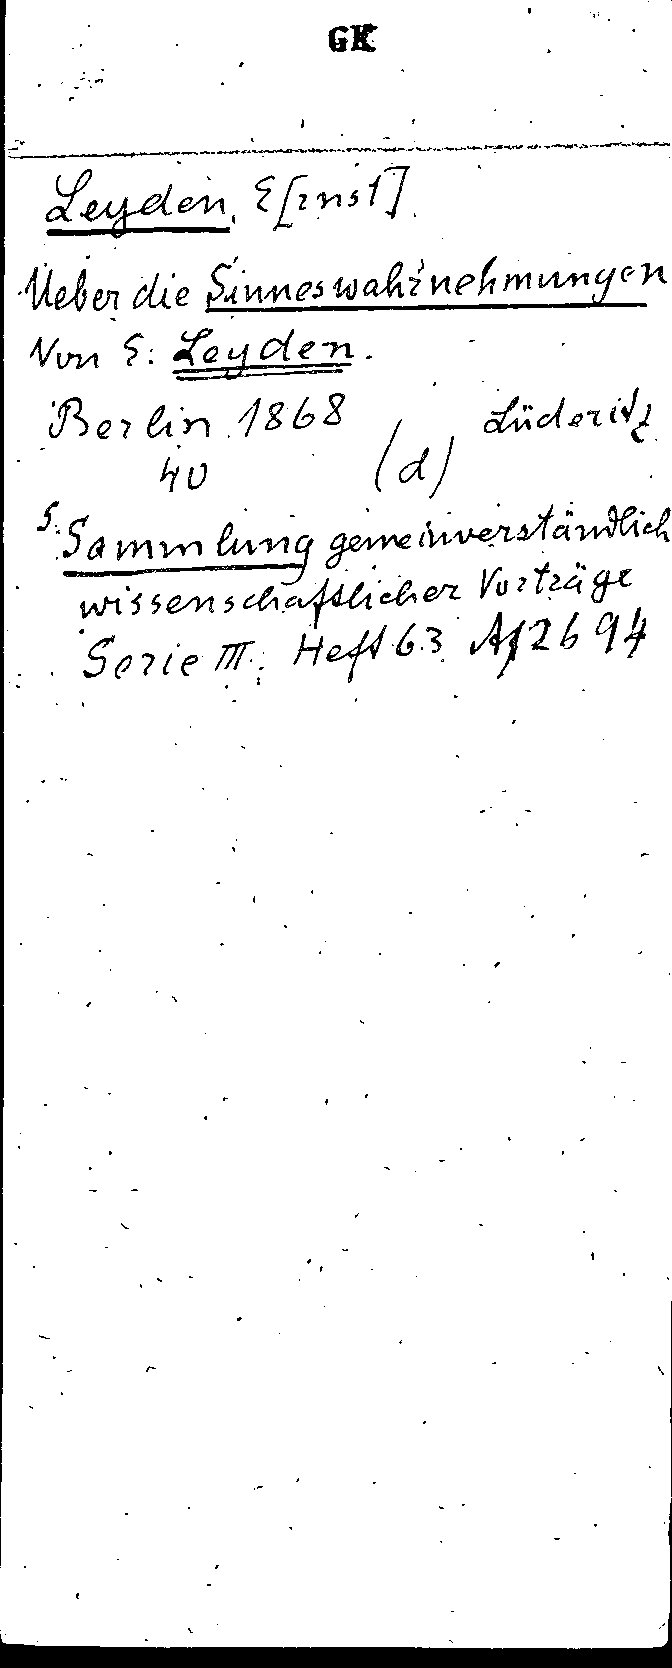 GK
Leyden, E[rnst]
Ueber die Sinneswahrnehmungen
Von E. Leyden.
Berlin 1868 Lüderitz
40 (d)
S. Sammlung gemeinverständlich
wissenschaftlicher Vorträge
Serie III. Heft 63 Af 2694